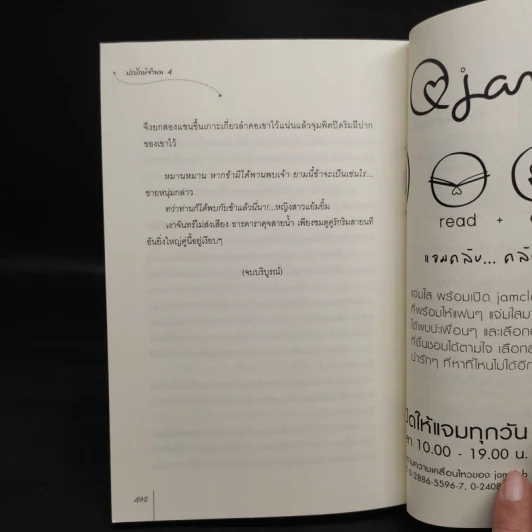 ปณไกษ์จำนน 4
จึงยกสองแขนขึ้นเกาะเกี่ยวลำคอเขาไว้แน่นแล้วจุมพิตปิดริมฝีปาก
ของเขาไว้
หมานหมาน หากข้ามิได้พานพบเจ้า ยามนี้ข้าจะเป็นเช่นไร...
ชายหนุ่มกล่าว
ทว่าท่านก็ได้พบกับข้าแล้วนี่นา!...หญิงสาวแย้มยิ้ม
เงาจันทร์ไม่ส่งเสียง ธารดาราดุจสายน้ำ เพียงชมดูคู่รักริมสายนที
อันยิ่งใหญ่คู่นี้อยู่เงียบๆ
(จบบริบูรณ์)
492
jam
read +
แจมคลับ... คลั
แจ่มใส พร้อมเปิด jamcl
ที่พร้อมให้แฟนๆ แจ่มใสม
ได้พบปะเพื่อนๆ และเลือก
ที่ชื่นชอบได้ตามใจ เลือก
น่ารักๆ ที่หาที่ไหนไม่ได้อีก
ปิดให้แจมทุกวัน
ลา 10.00 - 19.00 น.
ตามความเคลื่อนไหวของ jam
0-2886-5596-7, 0-2408